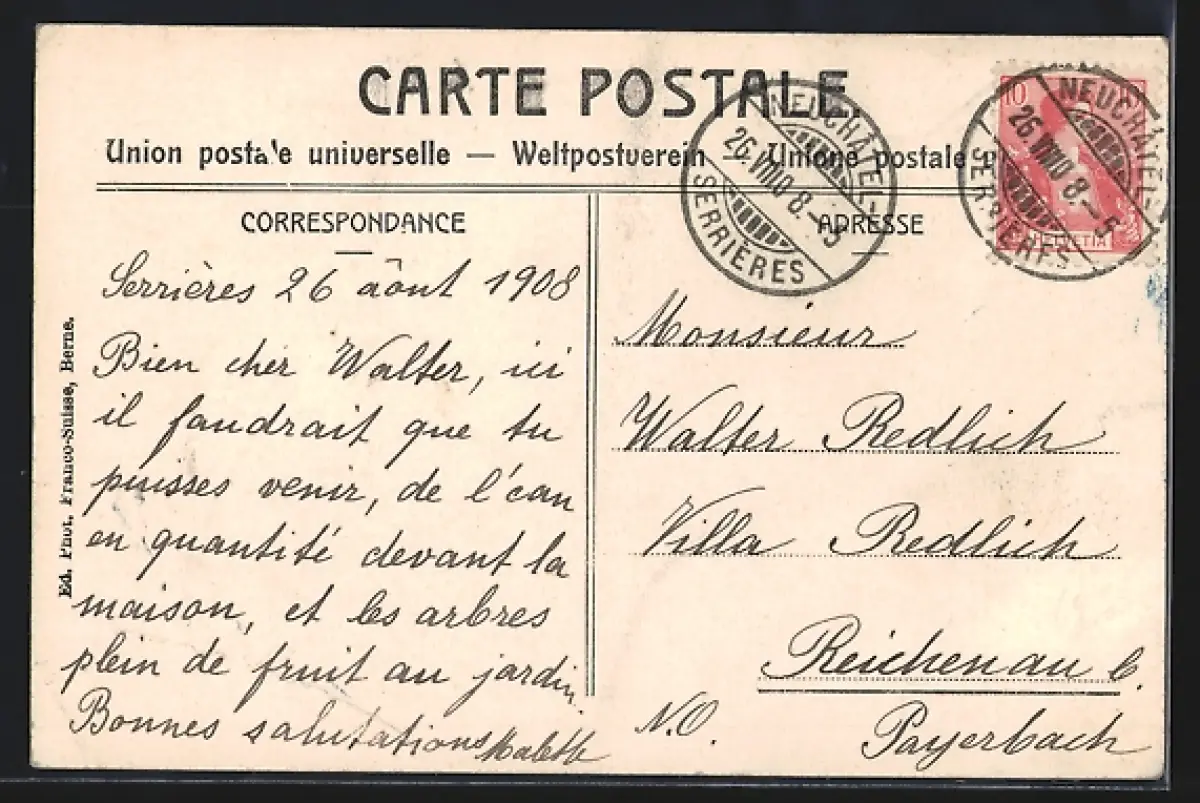 CARTE POSTALE.
Union postale universelle — Weltpostverein — Unione postale
CORRESPONDANCE
ADRESSE
NEUCHÂTEL-
26.VIII.08.-5
SERRIÈRES
10
NEUCHÂTEL-
26.VIII.08.-5
SERRIÈRES
HELVETIA
Serrières 26 août 1908
Bien cher Walter, ici
il faudrait que tu
puisses venir, de l'eau
en quantité devant la
maison, et les arbres
plein de fruit au jardin.
Bonnes salutations
Monsieur
Walter Redlich
Villa Redlich
Reichenau b.
N.O. Payerbach
Ed. Phot. Franco-Suisse, Berne.